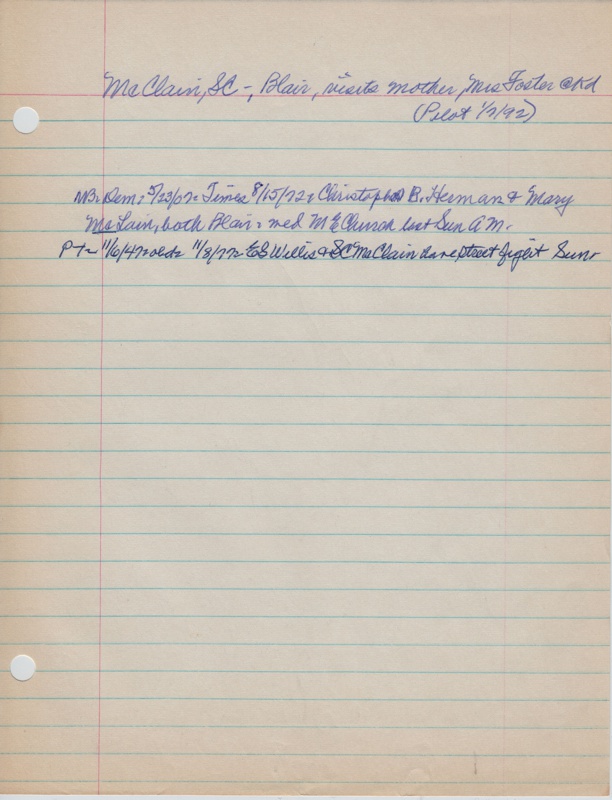 McClain, SC -, Blair, visits mother, Mrs Foster
(Pilot 1/7/92)
Dem: 5/23/07: Times 8/15/72: Christopher B. Herman & Mary
McLain, both Blair: wed M E Church last Sun A M.
11/8/77: ES Willis & SC McClain have street fight Sun.